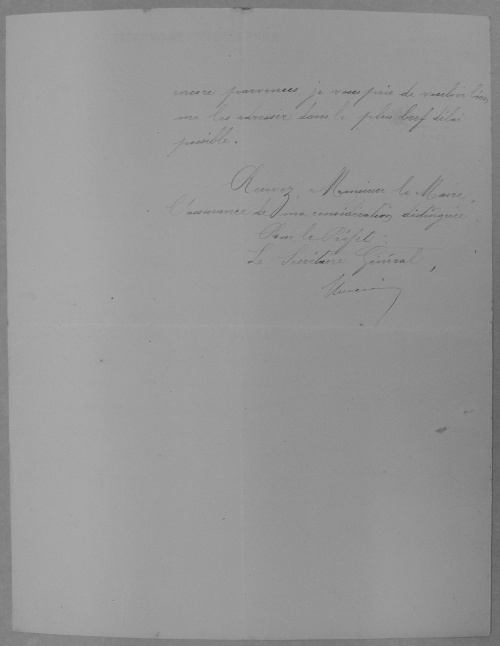 encore parvenues je vous prie de vouloir bien
me les adresser dans le plus bref délai
possible.
Recevez, Monsieur le Maire,
l'assurance de ma considération distinguée
Pour le Préfet:
Le Secrétaire Général,